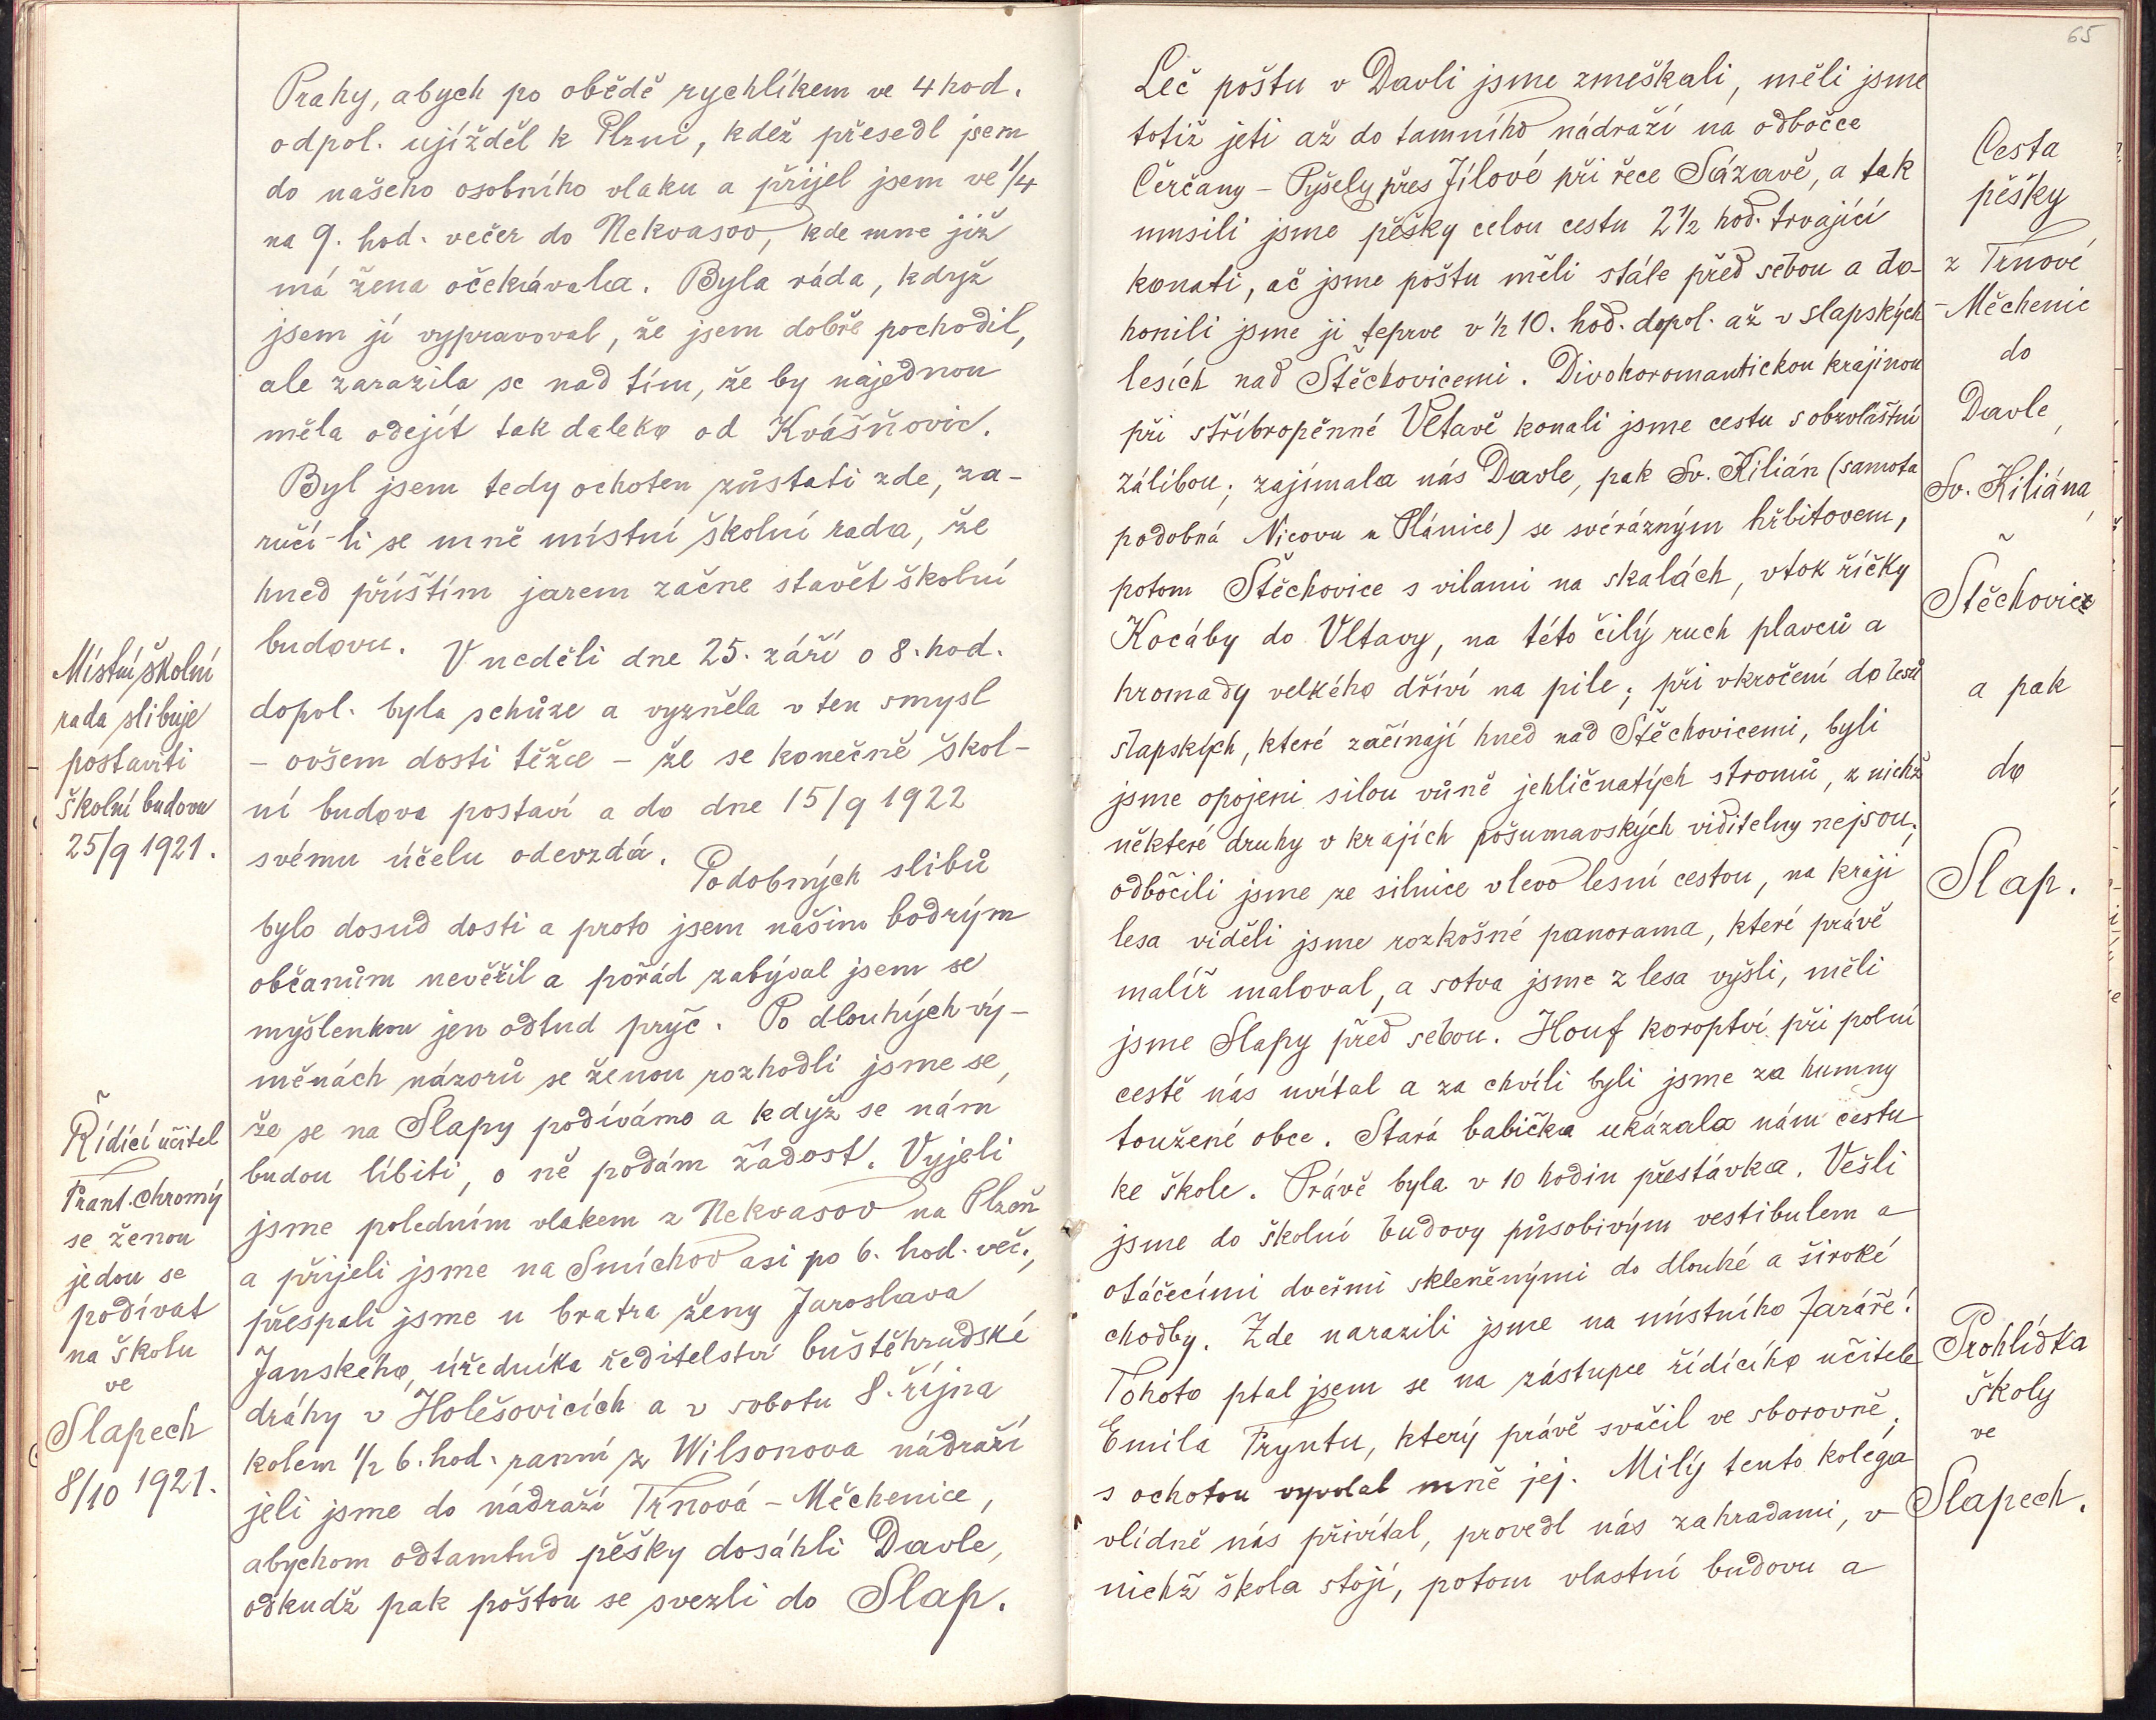 Prahy, abych po obědě rychlíkem ve 4 hod.
odpol. ujížděl k Plzni, kdež přesedl jsem
do našeho osobního vlaku a přijel jsem ve 1/4
na 9. hod. večer do Nekvasov, kde mne již
má žena očekávala. Byla ráda, když
jsem jí vypravoval, že jsem dobře pochodil,
ale zarazila se nad tím, že by najednou
měla odejít tak daleko od Kvášňovic.
Byl jsem tedy ochoten zůstati zde, za-
ručí-li se mně místní školní rada, že
hned příštím jarem začne stavět školní
budovu. V neděli dne 25. září o 8. hod.
dopol. byla schůze a vyzněla v ten smysl
- ovšem dosti těžce - že se konečně škol-
ní budova postaví a do dne 15/9 1922
svému účelu odevzdá. Podobných slibů
bylo dosud dosti a proto jsem našim bodrým
občanům nevěřil a pořád zabýval jsem se
myšlenkou jen odtud pryč. Po dlouhých vý-
měnách názorů se ženou rozhodli jsme se,
že se na Slapy podíváme a když se nám
budou líbiti, o ně podám žádost. Vyjeli
jsme poledním vlakem z Nekvasov na Plzeň
a přijeli jsme na Smíchov asi po 6. hod. več.,
přespali jsme u bratra ženy Jaroslava
Janského, úředníka ředitelství buštěhradské
dráhy v Holešovicích a v sobotu 8. října
kolem 1/2 6. hod. ranní z Wilsonova nádraží
jeli jsme do nádraží Trnová - Měchenice,
abychom odtamtud pěšky dosáhli Davle,
odkudž pak poštou se svezli do Slap.
Místní školní
rada slibuje
postaviti
školní budovu
25/9 1921.
Řídící učitel
Frant. Chromý
se ženou
jedou se
podívat
na školu
ve
Slapech
8/10 1921.
65
Leč poštu v Davli jsme zmeškali, měli jsme
totiž jeti až do tamního nádraží na odbočce
Čerčany - Pyšely přes Jílové při řece Sázavě, a tak
musili jsme pěšky celou cestu 2 1/2 hod. trvající
konati, ač jsme poštu měli stále před sebou a do-
honili jsme ji teprve v 1/2 10. hod. dopol. až v slapských
lesích nad Štěchovicemi. Divokoromantickou krajinou
při stříbropěnné Vltavě konali jsme cestu s obzvláštní
zálibou; zajímala nás Davle, pak Sv. Kilián (samota
podobná Nicovu u Plánice) se svérázným hřbitovem,
potom Štěchovice s vilami na skalách, vtok říčky
Kocáby do Vltavy, na této čilý ruch plavců a
hromady velkého dříví na pile; při vkročení do lesů
slapských, které začínají hned nad Štěchovicemi, byli
jsme opojeni silou vůně jehličnatých stromů, z nichž
některé druhy v krajích pošumavských viditelny nejsou;
odbočili jsme ze silnice vlevo lesní cestou, na kraji
lesa viděli jsme rozkošné panorama, které právě
malíř maloval, a sotva jsme z lesa vyšli, měli
jsme Slapy před sebou. Houf koroptví při polní
cestě nás uvítal a za chvíli byli jsme za humny
toužené obce. Stará babička ukázala nám cestu
ke škole. Právě byla v 10 hodin přestávka. Vešli
jsme do školní budovy působivým vestibulem a
otáčecími dveřmi skleněnými do dlouhé a široké
chodby. Zde narazili jsme na místního faráře!
Tohoto ptal jsem se na zástupce řídícího učitele
Emila Fryntu, který právě svačil ve sborovně;
s ochotou vyvolal mně jej. Milý tento kolega
vlídně nás přivítal, provedl nás zahradami, v
nichž škola stojí, potom vlastní budovu a
Cesta
pěšky
z Trnové
- Měchenic
do
Davle,
Sv. Kiliána,
Štěchovic
a pak
do
Slap.
Prohlídka
školy
ve
Slapech.